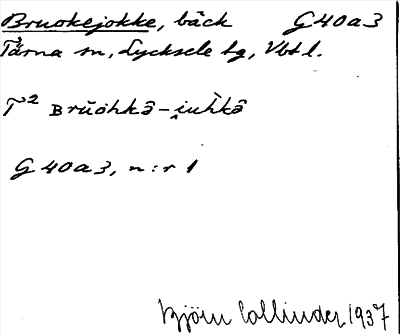 Bruokejokke, bäck G40a3
Tärna sn, Lycksele tg, Vbtl.
T² Brŭöhkâ-i̯uh̀kâ
G 40a3, n:r 1
Björn Collinder 1937